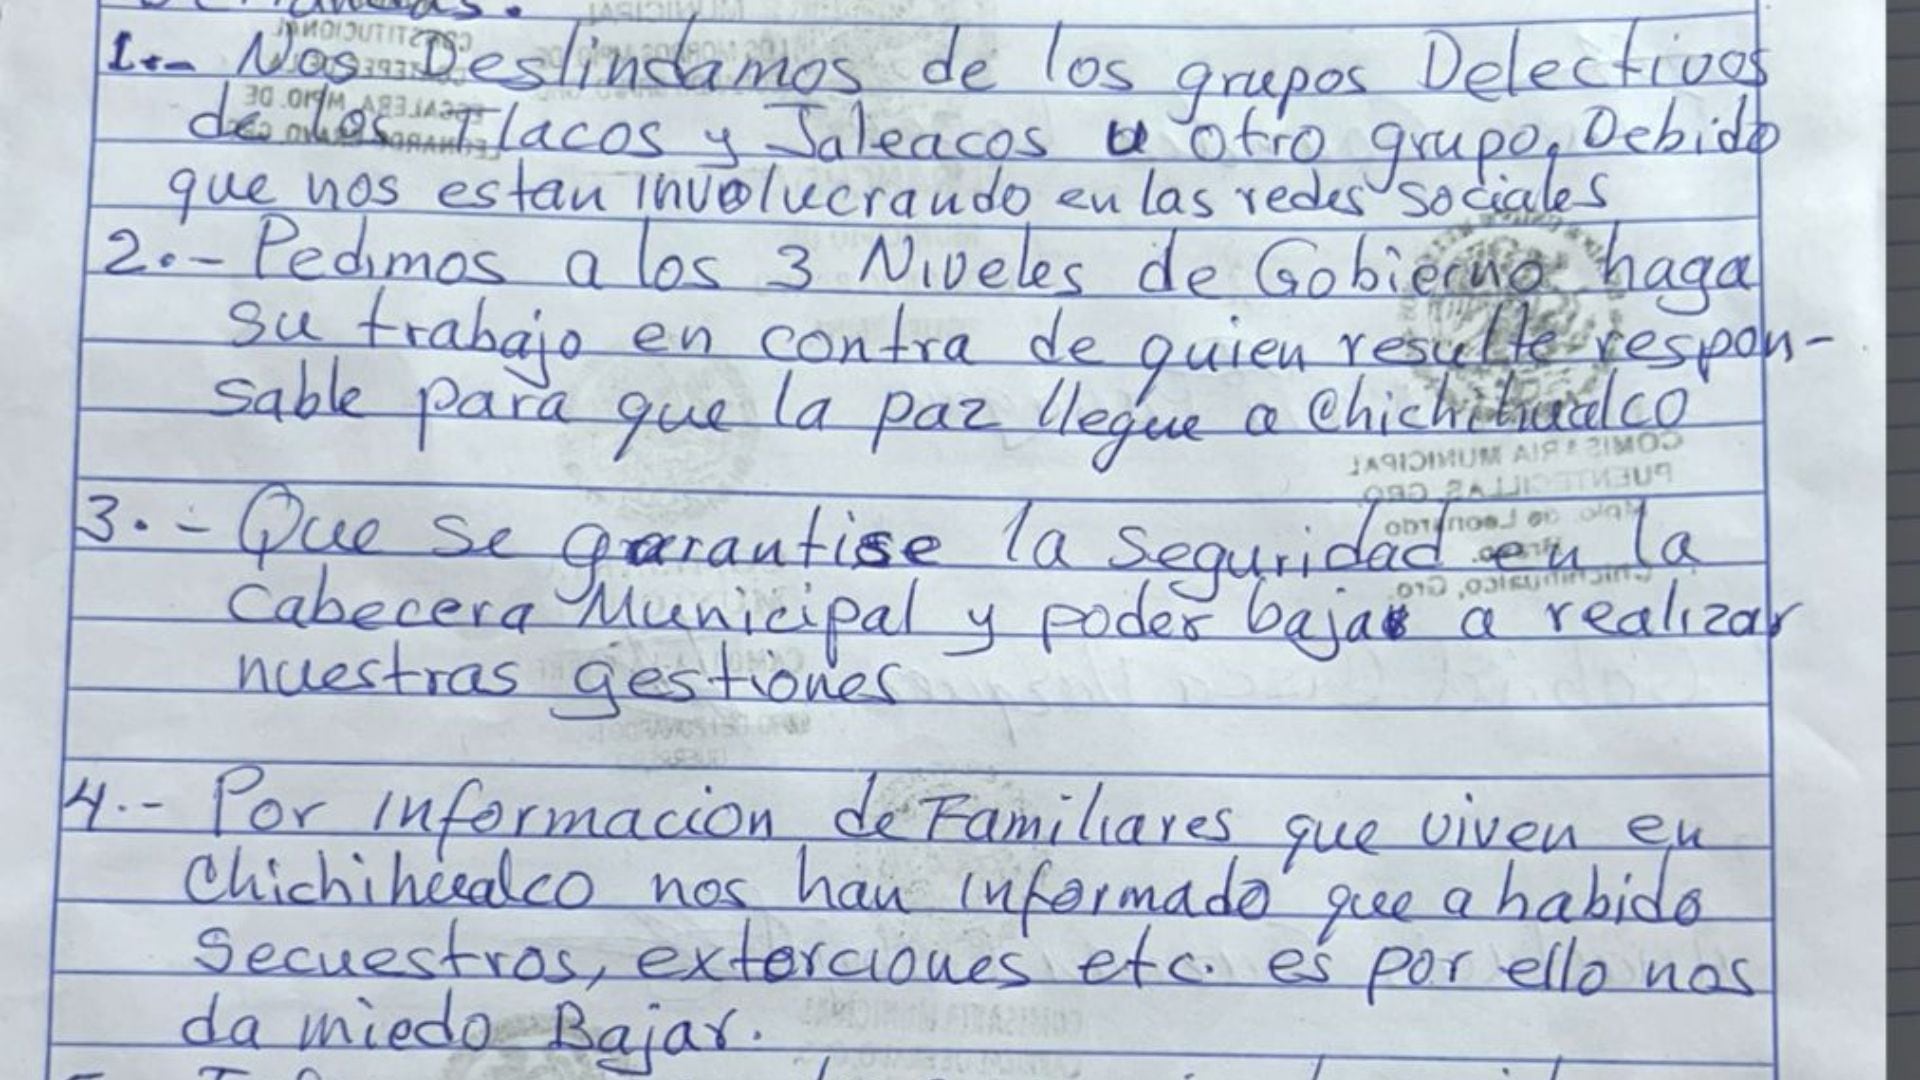 1.- Nos Deslindamos de los grupos Delectivos
de los Tlacos y Jaleacos u otro grupo, Debido
que nos estan involucrando en las redes sociales
2.- Pedimos a los 3 Niveles de Gobierno haga
su trabajo en contra de quien resulte respon-
sable para que la paz llegue a Chichihualco
3.- Que se garantise la seguridad en la
Cabecera Municipal y poder bajar a realizar
nuestras gestiones
4.- Por informacion de Familiares que viven en
Chichihualco nos han informado que a habido
Secuestros, extorciones etc. es por ello nos
da miedo Bajar.